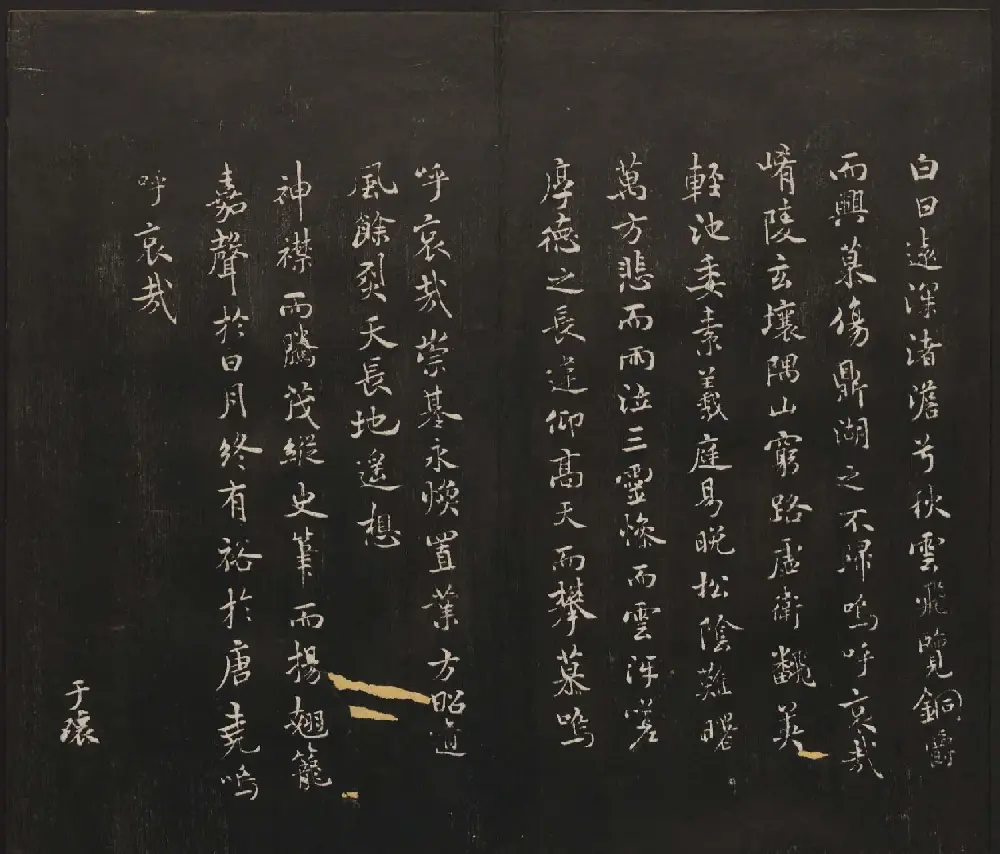 白日遠深渚澹兮秋雲飛覽銅爵
而興慕傷鼎湖之不歸嗚呼哀哉
崤陵玄壤隅山窮路虛衛飜英
輕池委素羲庭易晚松陰難曙
萬方悲而雨泣三靈慘而雲沍嗟
厚德之長違仰高天而攀慕嗚
呼哀哉崇基永煥置業方昭道
風餘烈天長地遙想
神襟而騰茂縱史筆而揚翹籠
嘉聲於日月終有裕於唐堯嗚
呼哀哉
于瓌